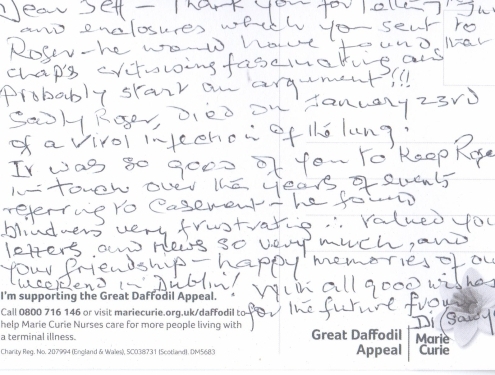 Dear Jeff - Thank you for letter
and enclosures which you sent to
Roger - he would have found that
chap's criticising fascinating and
Probably start an argument!!!
Sadly Roger, died on January 23rd
of a viral infection of the lung.
It was so good of you to keep Roger
in touch over the years of events
referring to Casement - he found
blindness very frustrating ∴ valued you
letters and news so very much, and
your friendship - happy memories of ou
weekend in Dublin! With all good wishes
for the future from
Di (Sawy
I'm supporting the Great Daffodil Appeal.
Call 0800 716 146 or visit mariecurie.org.uk/daffodil to
help Marie Curie Nurses care for more people living with
a terminal illness.
Charity Reg. No. 207994 (England & Wales), SC038731 (Scotland). DM5683
Great Daffodil
Appeal
Marie
Curie